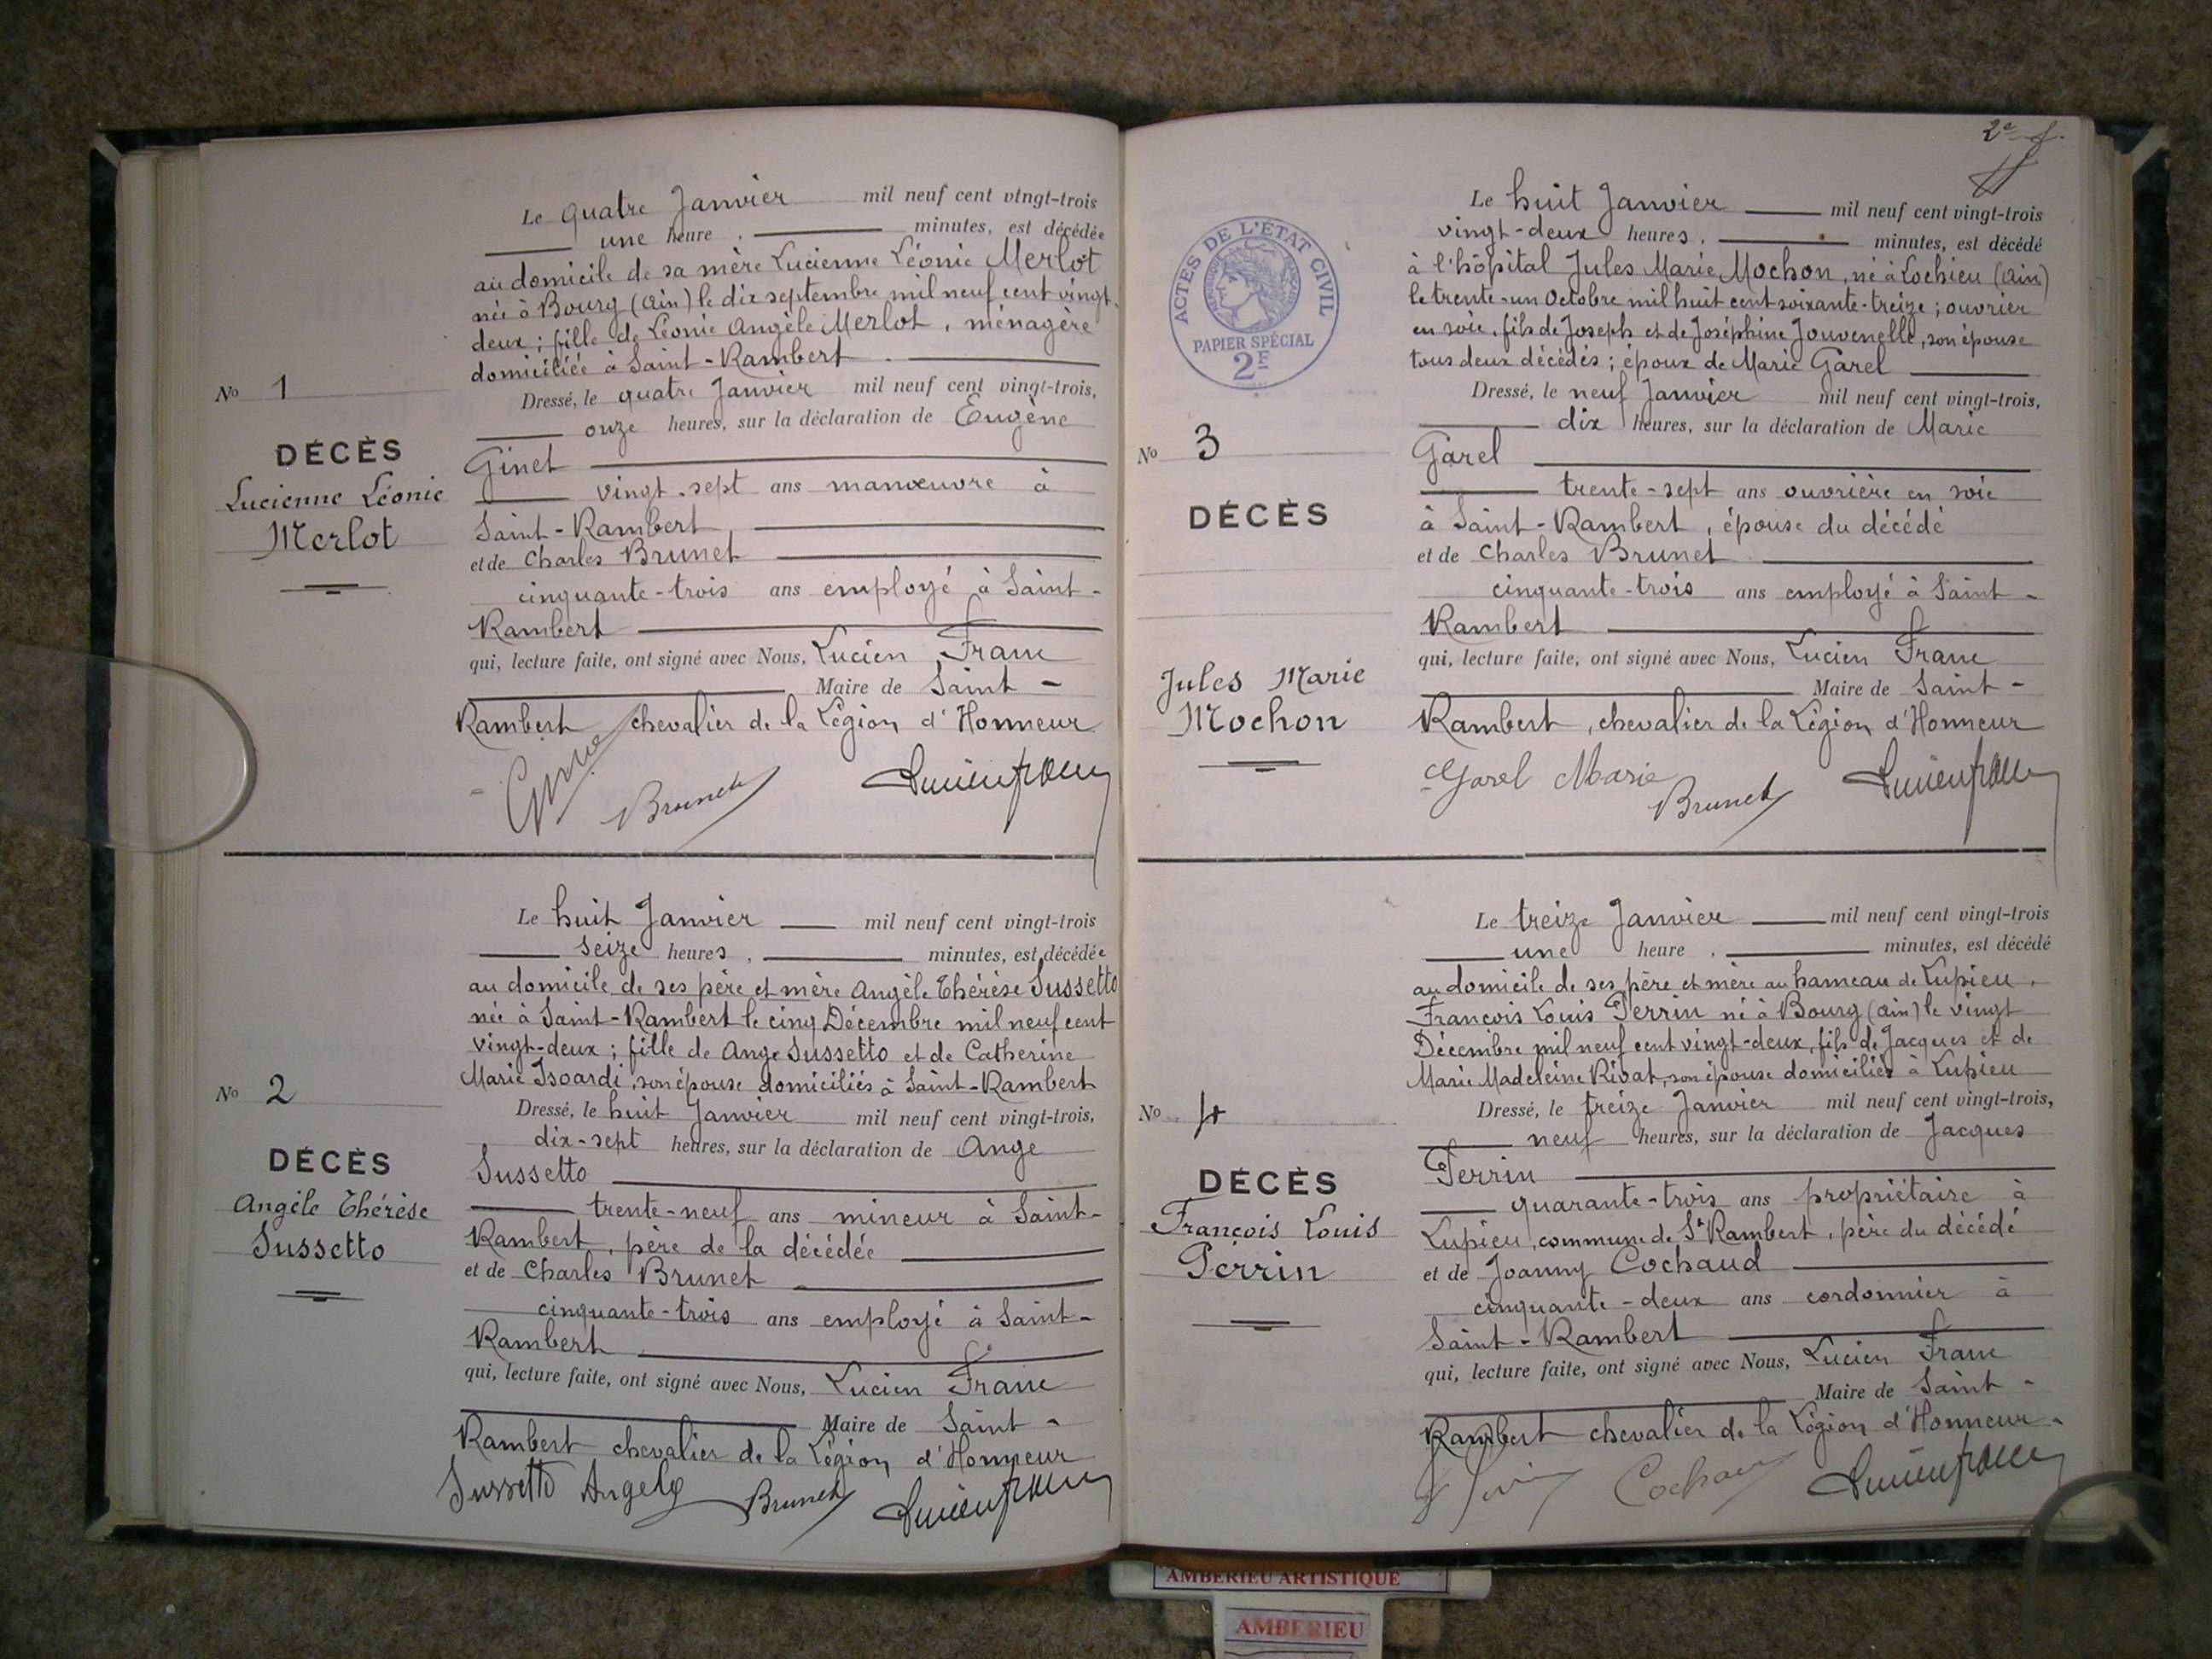 Le quatre Janvier mil neuf cent vingt-trois
une heure, minutes, est décédée
au domicile de sa mère Lucienne Léonie Merlot
née à Bourg (Ain) le dix septembre mil neuf cent vingt-
deux ; fille de Léonie Angèle Merlot, ménagère
domiciliée à Saint-Rambert.
No 1
Dressé, le quatre Janvier mil neuf cent vingt-trois,
onze heures, sur la déclaration de Eugène
DÉCÈS
Ginet
Lucienne Léonie
vingt-sept ans manœuvre à
Merlot
Saint-Rambert,
et de Charles Brunet
cinquante-trois ans employé à Saint-
Rambert
qui, lecture faite, ont signé avec Nous, Lucien Franc
Maire de Saint-
Rambert chevalier de la Légion d'Honneur
Brunet Lucien Franc
Le huit Janvier mil neuf cent vingt-trois
seize heures, minutes, est décédée
au domicile de ses père et mère Angèle Thérèse Sussetto
née à Saint-Rambert le cinq Décembre mil neuf cent
vingt-deux ; fille de Ange Sussetto et de Catherine
Marie Isoardi, son épouse domiciliés à Saint-Rambert
No 2
Dressé, le huit Janvier mil neuf cent vingt-trois,
dix-sept heures, sur la déclaration de Ange
DÉCÈS
Sussetto
Angèle Thérèse
trente-neuf ans mineur à Saint-
Sussetto
Rambert, père de la décédée
et de Charles Brunet
cinquante-trois ans employé à Saint-
Rambert
qui, lecture faite, ont signé avec Nous, Lucien Franc
Maire de Saint-
Rambert chevalier de la Légion d'Honneur
Sussetto Angelo Brunet Lucien Franc
2e f.
ACTES DE L'ÉTAT CIVIL
RÉPUBLIQUE FRANÇAISE
PAPIER SPÉCIAL
2F
Le huit Janvier mil neuf cent vingt-trois
vingt-deux heures, minutes, est décédé
à l'hôpital Jules Marie Mochon, né à Lochieu (Ain)
le trente-un Octobre mil huit cent soixante-treize ; ouvrier
en soie, fils de Joseph et de Joséphine Jouvenelle, son épouse
tous deux décédés ; époux de Marie Garel
Dressé, le neuf Janvier mil neuf cent vingt-trois,
dix heures, sur la déclaration de Marie
No 3
Garel
trente-sept ans ouvrière en soie
DÉCÈS
à Saint-Rambert, épouse du décédé
et de Charles Brunet
cinquante-trois ans employé à Saint-
Rambert
qui, lecture faite, ont signé avec Nous, Lucien Franc
Jules Marie
Maire de Saint-
Mochon
Rambert, chevalier de la Légion d'Honneur
Garel Marie Brunet Lucien Franc
Le treize Janvier mil neuf cent vingt-trois
une heure, minutes, est décédé
au domicile de ses père et mère au hameau de Lupieu,
François Louis Perrin né à Bourg (Ain) le vingt
Décembre mil neuf cent vingt-deux, fils de Jacques et de
Marie Madeleine Rivat, son épouse domiciliés à Lupieu
No 4
Dressé, le treize Janvier mil neuf cent vingt-trois,
neuf heures, sur la déclaration de Jacques
DÉCÈS
Perrin
François Louis
quarante-trois ans propriétaire à
Perrin
Lupieu, commune de St Rambert, père du décédé
et de Joanny Cochaud
cinquante-deux ans cordonnier à
Saint-Rambert
qui, lecture faite, ont signé avec Nous, Lucien Franc
Maire de Saint-
Rambert chevalier de la Légion d'Honneur.
Cochaud Lucien Franc
AMBERIEU ARTISTIQUE
AMBERIEU